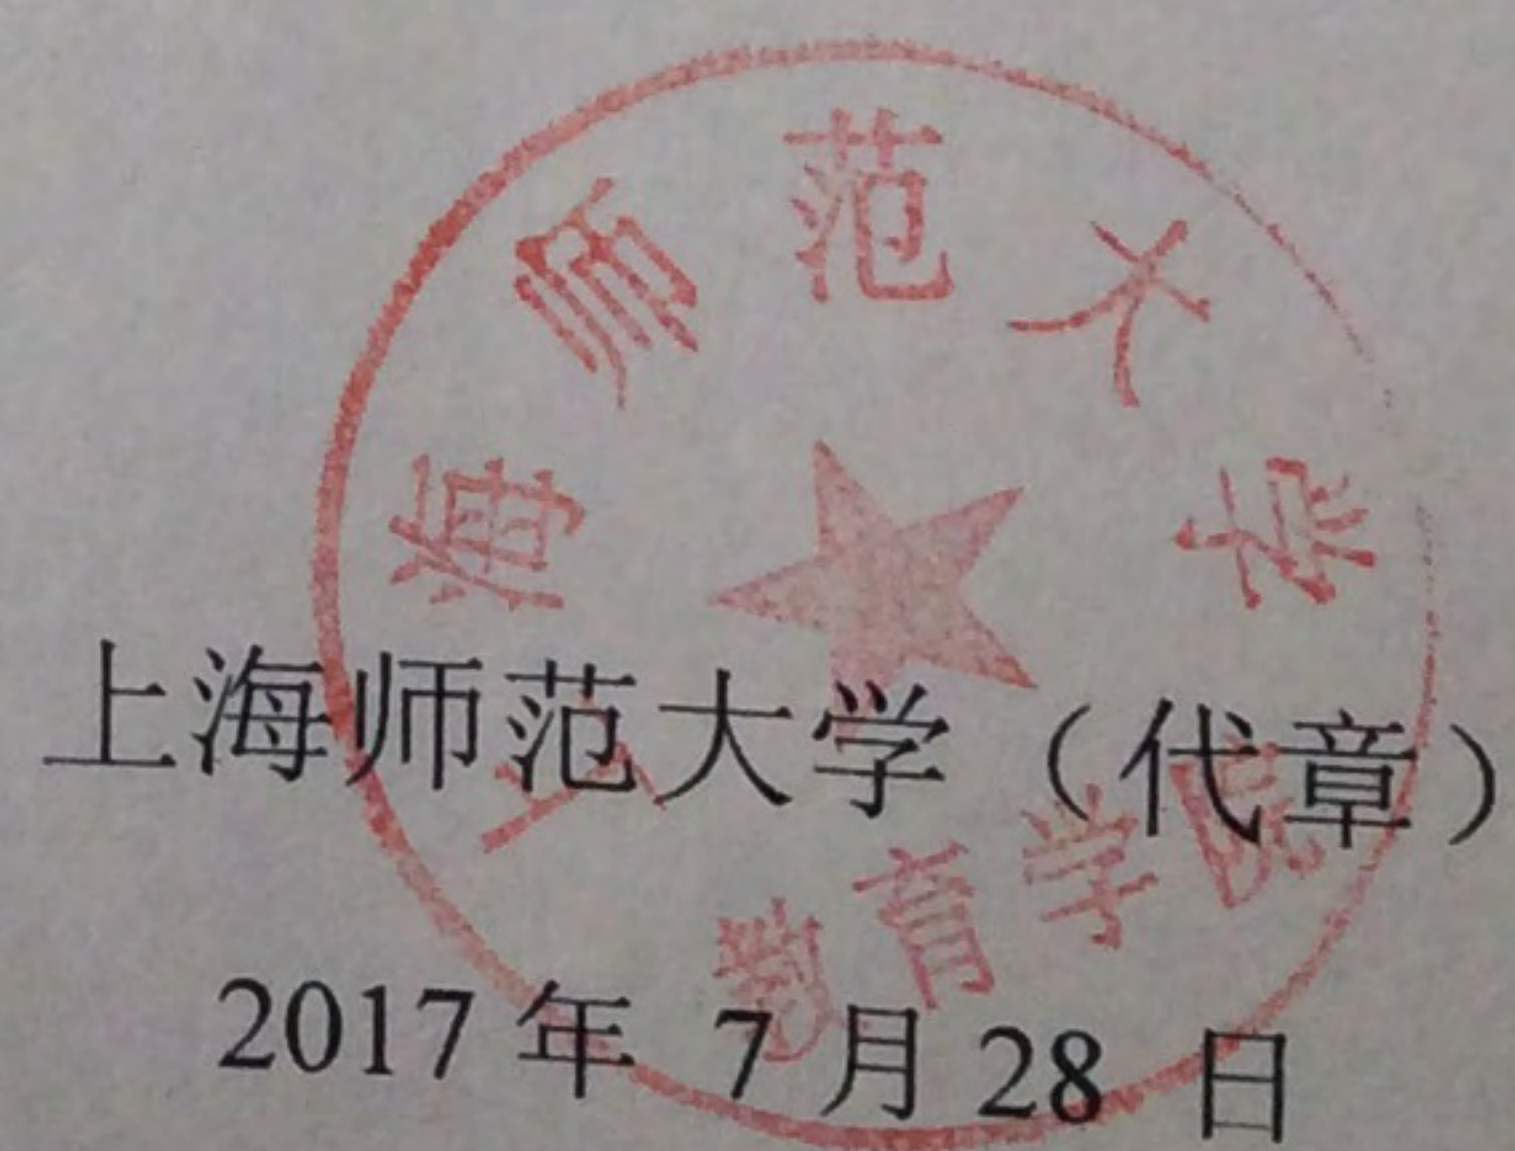 上海师范大学
教育学院
上海师范大学（代章）
2017年 7月28 日